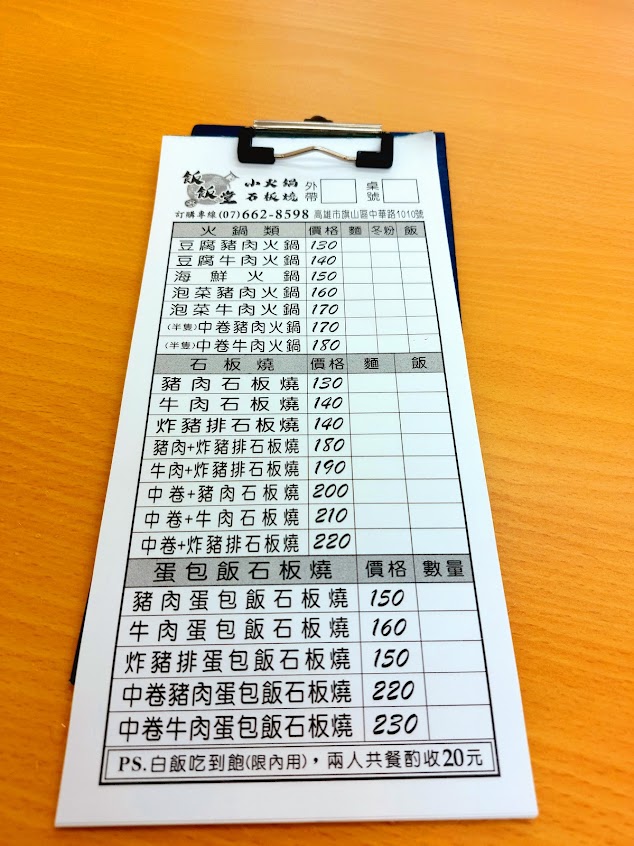 飯飯堂 小火鍋 石板燒 外帶 桌號
訂購專線(07)662-8598 高雄市旗山區中華路1010號
火鍋類 價格 麵 冬粉 飯
豆腐豬肉火鍋 130
豆腐牛肉火鍋 140
海鮮火鍋 150
泡菜豬肉火鍋 160
泡菜牛肉火鍋 170
(半隻)中卷豬肉火鍋 170
(半隻)中卷牛肉火鍋 180
石板燒 價格 麵 飯
豬肉石板燒 130
牛肉石板燒 140
炸豬排石板燒 140
豬肉+炸豬排石板燒 180
牛肉+炸豬排石板燒 190
中卷+豬肉石板燒 200
中卷+牛肉石板燒 210
中卷+炸豬排石板燒 220
蛋包飯石板燒 價格 數量
豬肉蛋包飯石板燒 150
牛肉蛋包飯石板燒 160
炸豬排蛋包飯石板燒 150
中卷豬肉蛋包飯石板燒 220
中卷牛肉蛋包飯石板燒 230
PS.白飯吃到飽(限內用)，兩人共餐酌收20元